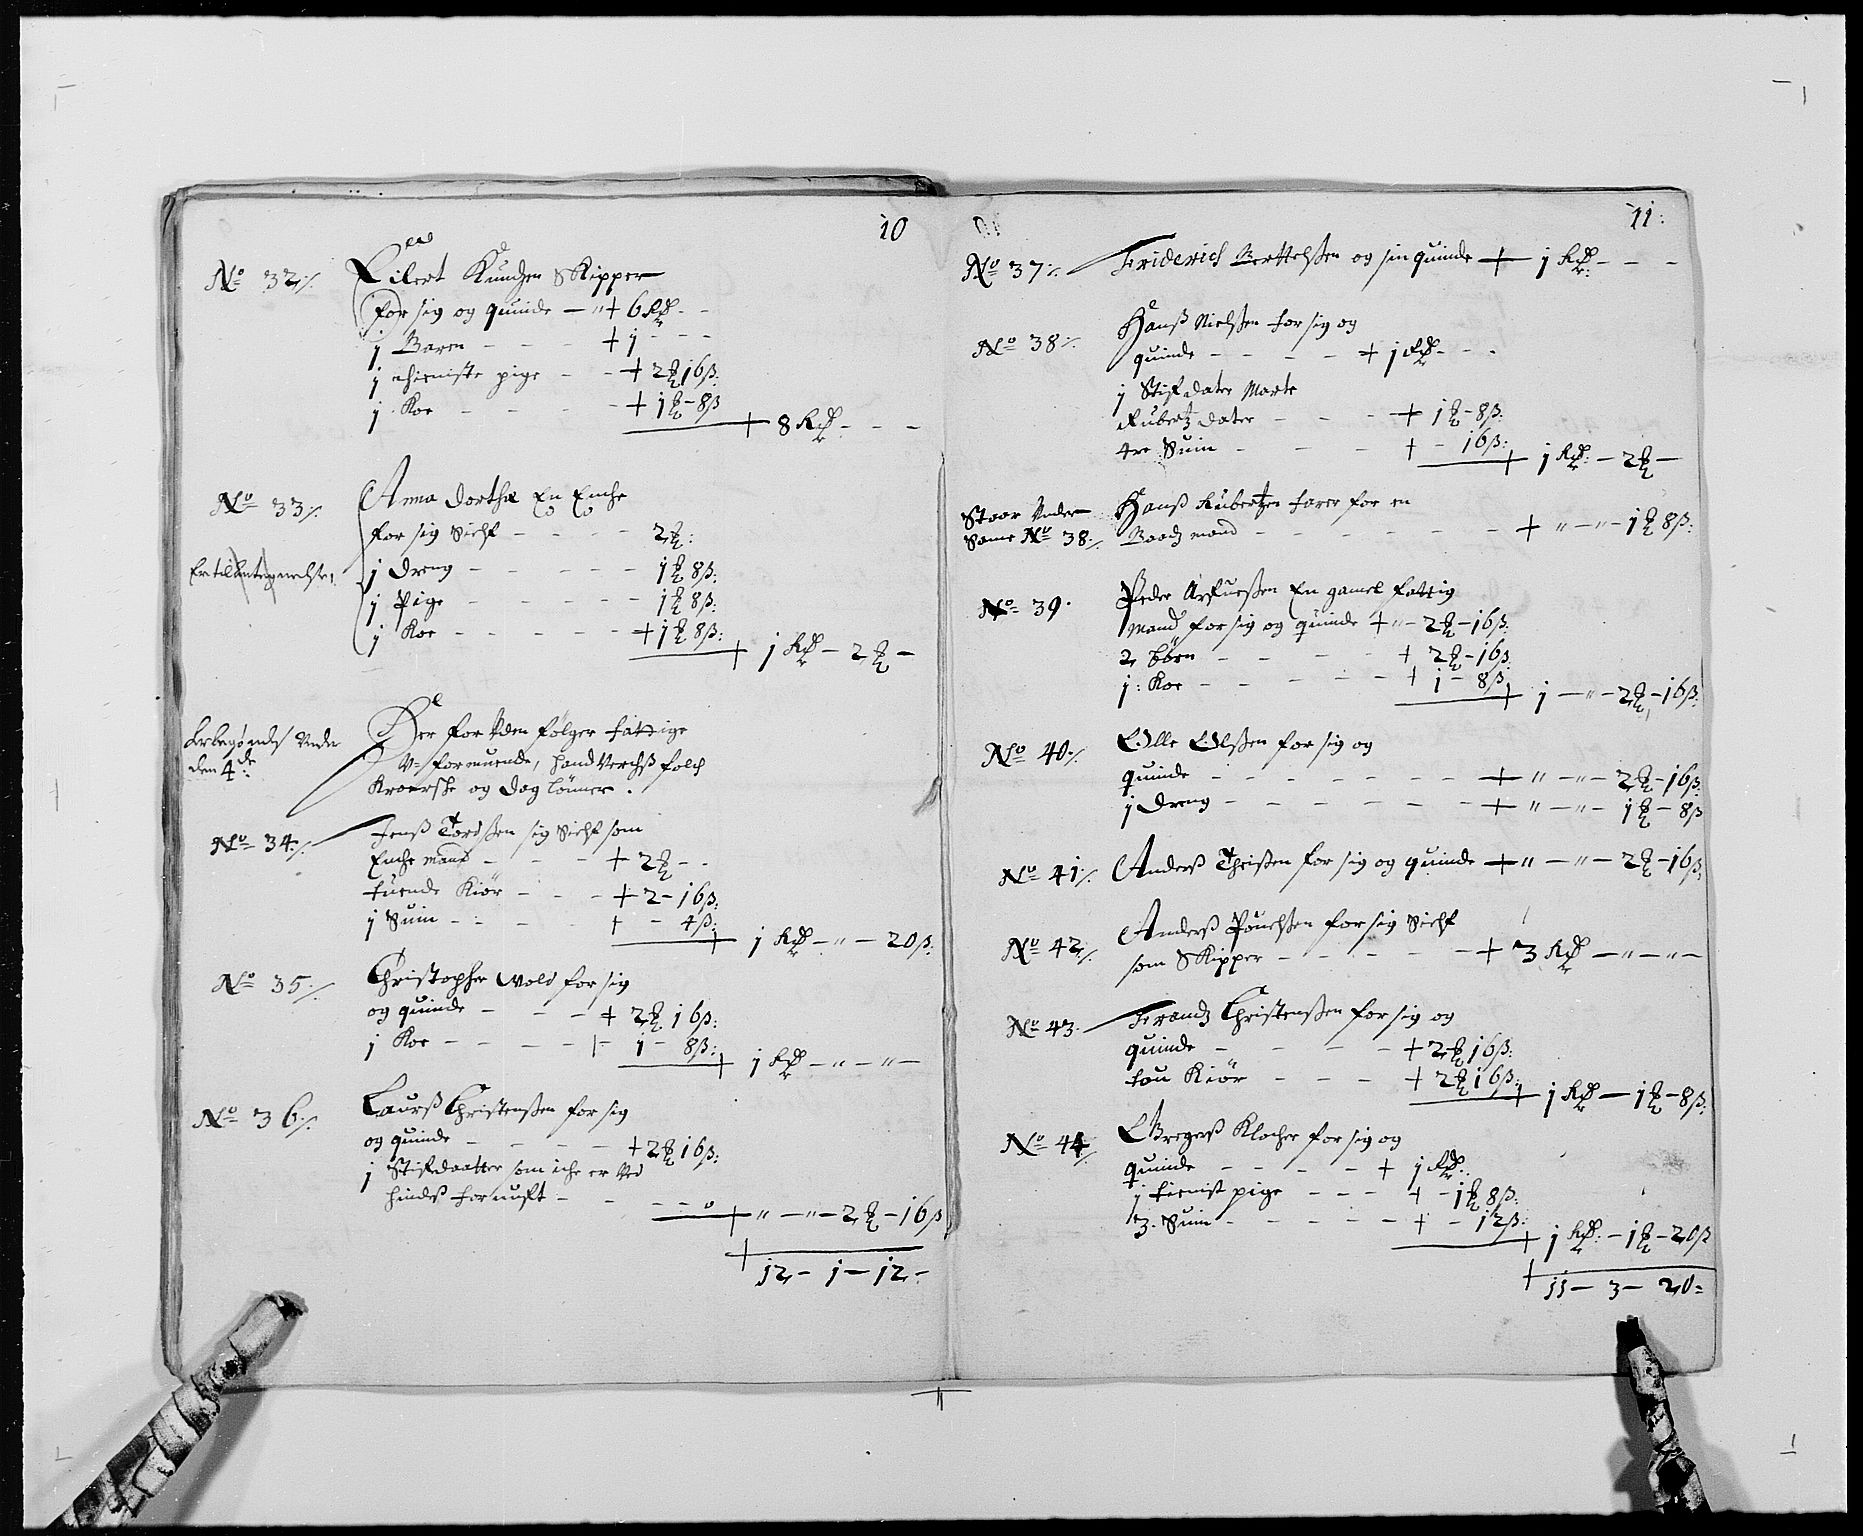 10
No 32 Eilert Knudzen Skipper
for sig og quinde — + 6 Rd - -
1 Baren - - - + 1 - - -
1 thieniste pige - - + 2 16ß
1 Koe - - - + 1 - 8ß
+ 8 Rd - - -
No 33 Anna Dorthe En Enche
for sig Sielf - - - - 2
1 dreng - - - - - 1 8ß
1 Pige - - - - - 1 8ß
1 Koe - - - - - + 1 8ß
+ 1 Rd - 2 -
Under
den 4de
Her for Uden følger fattige
V-formuende, handverchß folch
og dag lönner.
No 34 Jenß Tordßen sig Sielf som
Enche mand - - - + 2 - -
tuende Kiör - - - + 2 - 16ß
1 Suin - - - + - 4ß
+ 1 Rd - " - 20ß
No 35 Christopher Wold for sig
og quinde - - - + 2 16ß
1 Koe - - - - 1 - 8ß
+ 1 Rd - " - " -
No 36 Laurß Christenßen for sig
og quinde - - - - + 2 16ß
1 Stifdaatter som iche er Ved
hindeß fornuft - - - - 0
+ " - " - 2 - 16ß
+ 12 - 1 - 12 -
11
No 37 Friderich Berttelßen og sin quinde + 1 Rd - - -
No 38 Hanß Nielßen for sig og
quinde - - - - + 1 Rd - - -
1 Stif dater Marte
Rubertz dater - - - + 1 - 8ß
tre Suin - - - + - 16ß
+ 1 Rd - 2 -
Staar Under
Same No 38 Hanß Rubertzen farer for en
Baadz mand - - - - - - + " - " - 1 8ß
No 39 Peder Arfueßen En gamel fattig
mand for sig og quinde + " - 2 - 16ß
2 børn - - - - + 2 - 16ß
1 Koe - - - - - + 1 - 8ß
+ 1 - " - 2 - 16ß
No 40 Olle Olßen for sig og
quinde - - - - - - - + " - " - 2 - 16ß
1 dreng - - - - - - - + " - " - 1 - 8ß
No 41 Anderß Thrißen for sig og quinde + " - " - 2 - 16ß
No 42 Anderß Pouelßen for sig Sielf
som Skipper - - - - - + 3 Rd - " - " -
No 43 Frandz Christenßen for sig og
quinde - - - - - + 2 16ß
tou Kiör - - - + 2 16ß
+ 1 Rd - 1 - 8ß
No 44 Gregerß Klocher for sig og
quinde - - - - + 1 Rd
1 tienist pige - - - + - 1 8ß
3 Suin - - - - - + - 12ß
+ 1 Rd - 1 - 20ß
+ 11 - 3 - 20